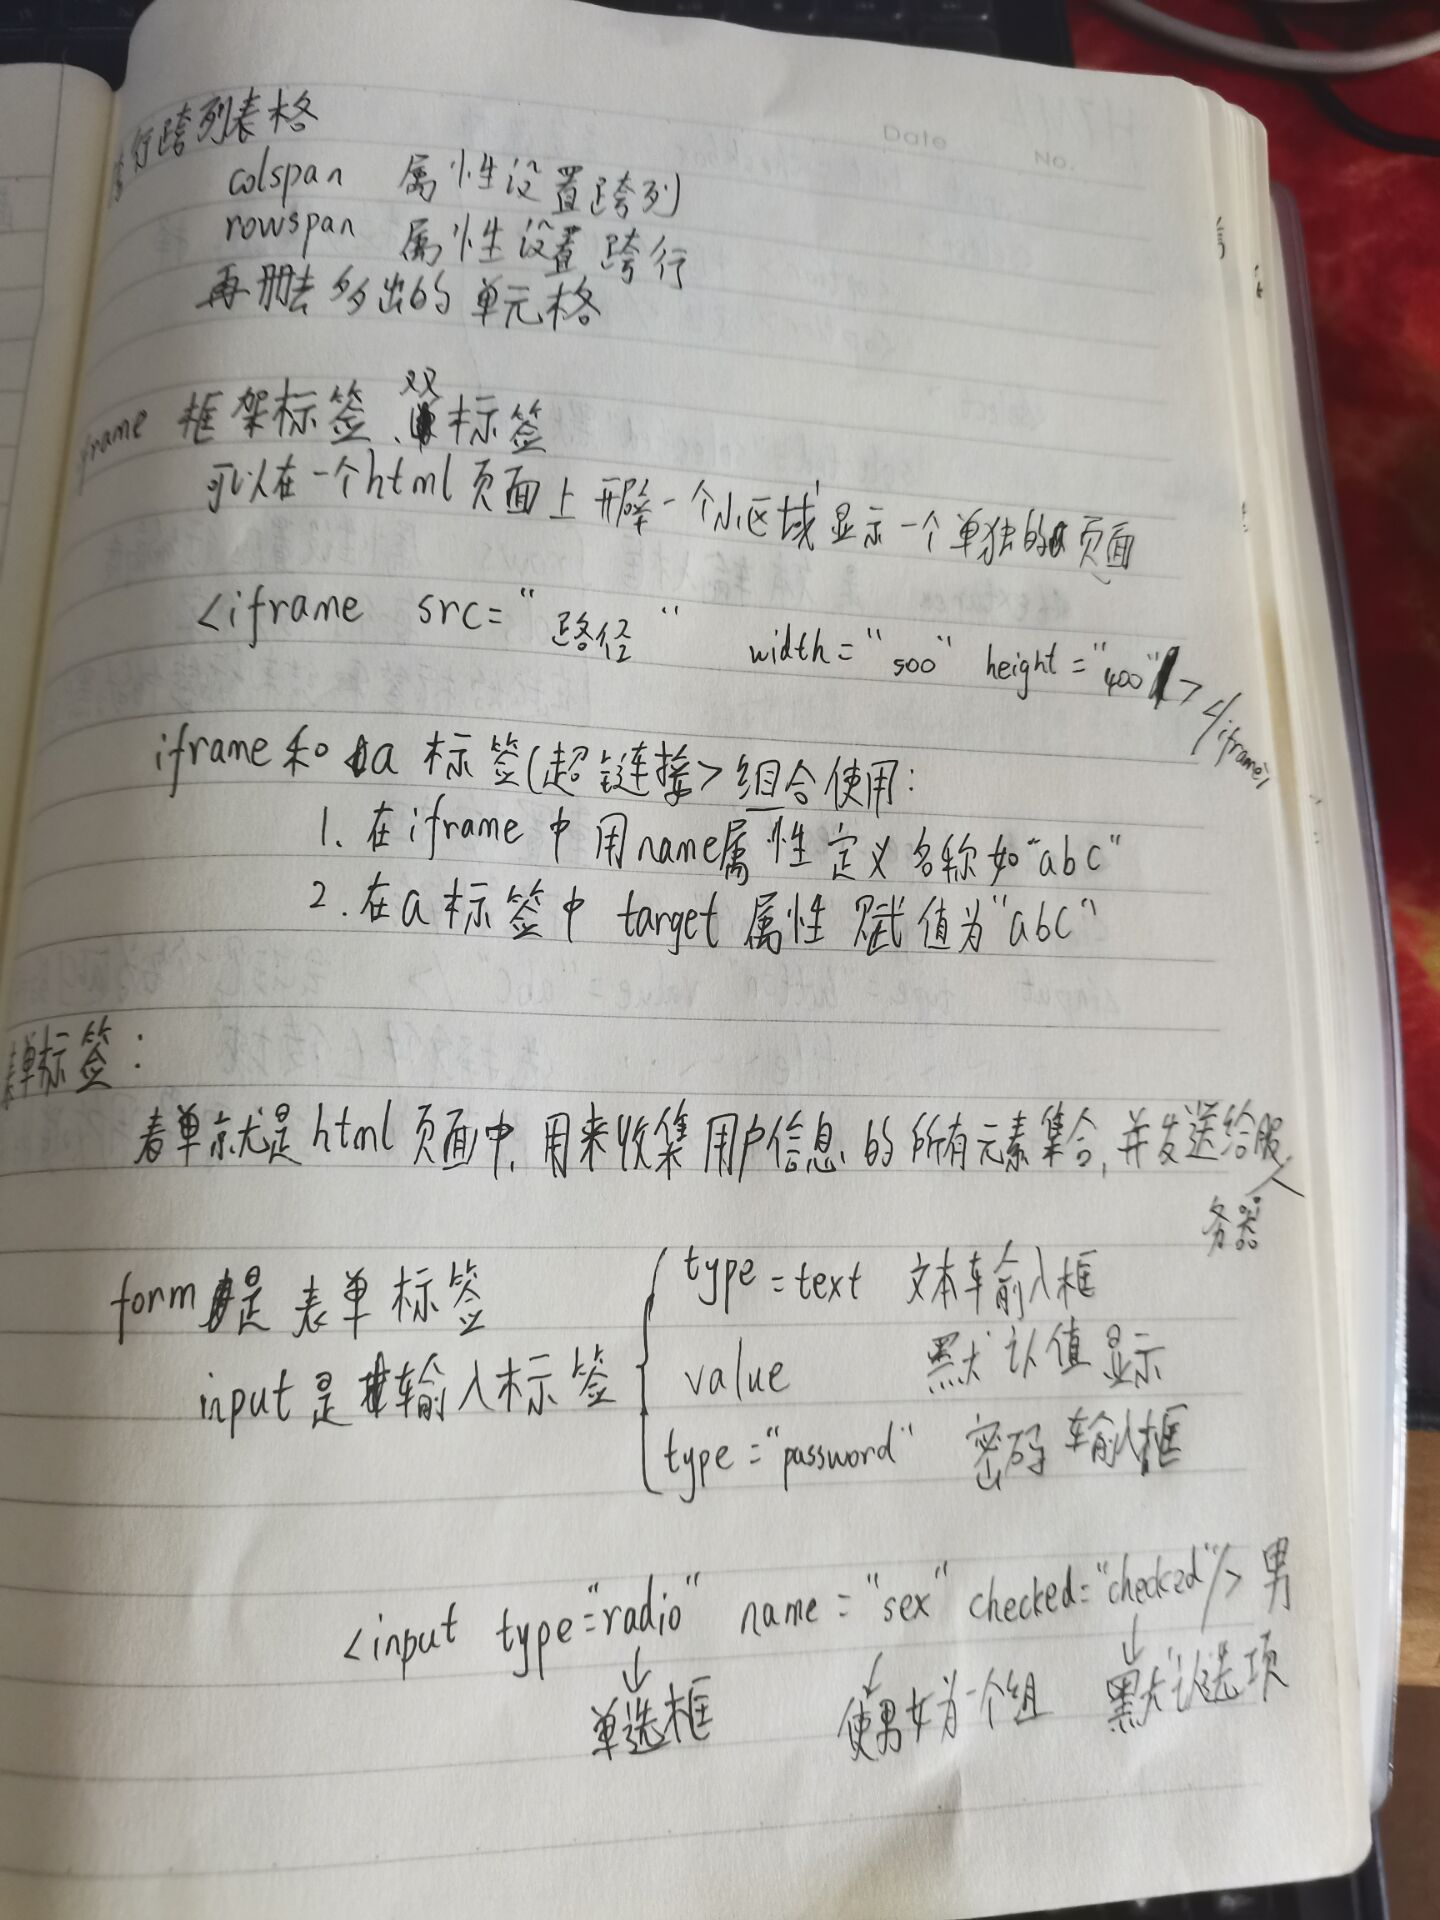 Date No.
跨行跨列表格
colspan 属性设置跨列
rowspan 属性设置跨行
再删去多出的单元格
iframe 框架标签、双标签
可以在一个html页面上开辟一个小区域显示一个单独的页面
<iframe src="路径" width="500" height="400"></iframe>
iframe和a标签(超链接>组合使用:
1.在iframe中用name属性定义名称如"abc"
2.在a标签中 target 属性赋值为"abc"
表单标签:
表单就是html页面中,用来收集用户信息的所有元素集合,并发送给服
务器
form是表单标签
input是输入标签
type=text 文本输入框
value 默认值显示
type="password" 密码输入框
<input type="radio" name="sex" checked="checked"/>男
↓单选框 ↓使男女为一个组 ↓默认选项